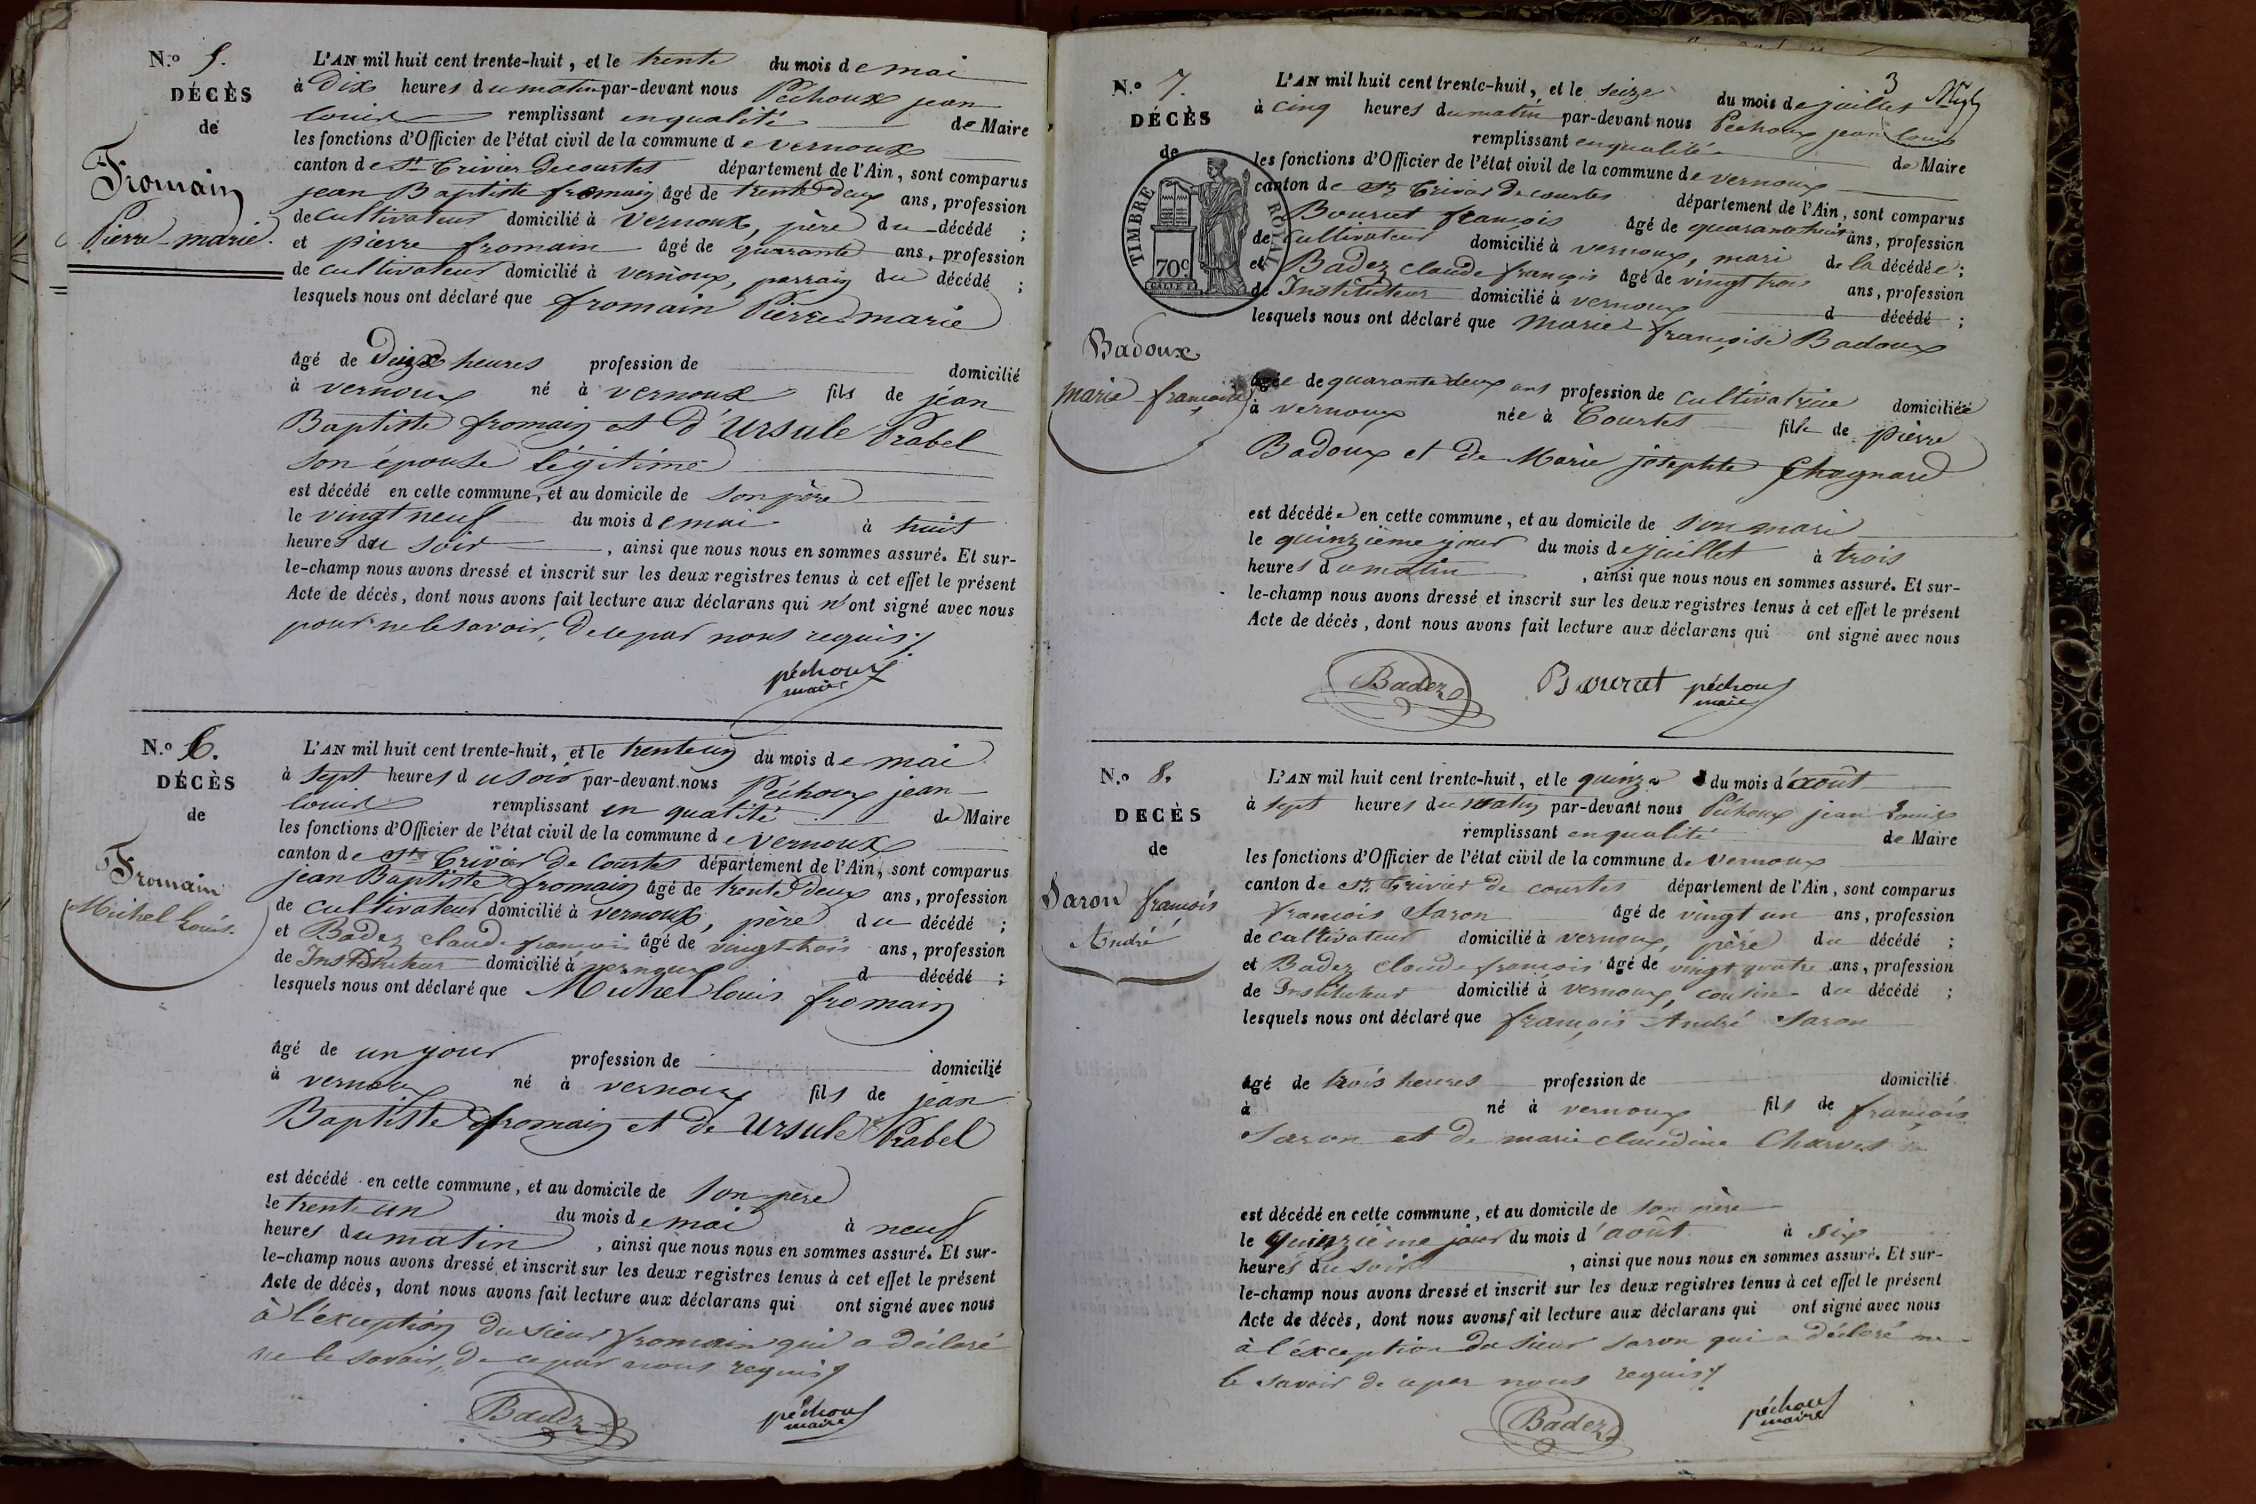 N.o 5.
DÉCÈS
de
Fromain
Pierre-marie.
L'AN mil huit cent trente-huit, et le trente du mois de mai
à Dix heures du matin par-devant nous Péchoux jean
louis remplissant en qualité de Maire
les fonctions d'Officier de l'état civil de la commune de vernoux
canton de St Trivier de courtes département de l'Ain, sont comparus
jean Baptiste fromain âgé de trente deux ans, profession
de cultivateur domicilié à vernoux, père du décédé ;
et pierre fromain âgé de quarante ans, profession
de cultivateur domicilié à vernoux, parrain du décédé ;
lesquels nous ont déclaré que fromain Pierre marie
âgé de heures profession de domicilié
à vernoux né à vernoux fils de jean
Baptiste fromain et d'Ursule Prabel
son épouse légitime
est décédé en cette commune, et au domicile de son père
le vingt neuf du mois de mai à huit
heures du soir , ainsi que nous nous en sommes assuré. Et sur-
le-champ nous avons dressé et inscrit sur les deux registres tenus à cet effet le présent
Acte de décès, dont nous avons fait lecture aux déclarans qui n'ont signé avec nous
pour ne le savoir, de ce par nous requis
péchoux
maire
N.o 6.
DÉCÈS
de
Fromain
Michel Louis.
L'AN mil huit cent trente-huit, et le trente un du mois de mai
à sept heures du soir par-devant nous Péchoux jean
louis remplissant en qualité de Maire
les fonctions d'Officier de l'état civil de la commune de vernoux
canton de St Trivier de Courtes département de l'Ain, sont comparus
jean Baptiste fromain âgé de trente deux ans, profession
de cultivateur domicilié à vernoux, père du décédé ;
et Badez claude françois âgé de vingt trois ans, profession
de Instituteur domicilié à vernoux d décédé ;
lesquels nous ont déclaré que Michel louis fromain
âgé de un jour profession de domicilié
à vernoux né à vernoux fils de jean
Baptiste fromain et de Ursule Prabel
est décédé en cette commune, et au domicile de son père
le trente un du mois de mai à neuf
heures du matin , ainsi que nous nous en sommes assuré. Et sur-
le-champ nous avons dressé et inscrit sur les deux registres tenus à cet effet le présent
Acte de décès, dont nous avons fait lecture aux déclarans qui ont signé avec nous
à l'éxception du sieur fromain qui a déclaré
ne le savoir, de ce par nous requis
Badez péchoux
maire
3
N.o 7.
DÉCÈS
de
TIMBRE ROYAL
70c
Badoux
marie françoise
L'AN mil huit cent trente-huit, et le seize du mois de juillet
à cinq heures du matin par-devant nous Péchoux jean louis
remplissant en qualité de Maire
les fonctions d'Officier de l'état civil de la commune de vernoux
canton de St Trivier de courtes département de l'Ain, sont comparus
Bourcet françois âgé de quarante huit ans, profession
de cultivateur domicilié à vernoux, mari de la décédée ;
et Badez claude françois âgé de vingt trois ans, profession
de Instituteur domicilié à vernoux d décédé ;
lesquels nous ont déclaré que Marie françoise Badoux
âgée de quarante deux ans profession de cultivatrice domiciliée
à vernoux née à Courtes fille de pierre
Badoux et de Marie josephte Chagnard
est décédée en cette commune, et au domicile de son mari
le quinzième jour du mois de juillet à trois
heures du matin , ainsi que nous nous en sommes assuré. Et sur-
le-champ nous avons dressé et inscrit sur les deux registres tenus à cet effet le présent
Acte de décès, dont nous avons fait lecture aux déclarans qui ont signé avec nous
Badez Bourcet péchoux
maire
N.o 8.
DÉCÈS
de
Saron françois
André
L'AN mil huit cent trente-huit, et le quinze du mois d'août
à sept heures du matin par-devant nous Péchoux jean Louis
remplissant en qualité de Maire
les fonctions d'Officier de l'état civil de la commune de vernoux
canton de St Trivier de courtes département de l'Ain, sont comparus
françois Saron âgé de vingt un ans, profession
de cultivateur domicilié à vernoux, père du décédé ;
et Badez claude françois âgé de vingt quatre ans, profession
de Instituteur domicilié à vernoux, cousin du décédé ;
lesquels nous ont déclaré que françois André Saron
âgé de trois heures profession de domicilié
à né à vernoux fils de françois
Saron et de marie claudine Charvet
est décédé en cette commune, et au domicile de son père
le quinzième jour du mois d'août à six
heures du soir , ainsi que nous nous en sommes assuré. Et sur-
le-champ nous avons dressé et inscrit sur les deux registres tenus à cet effet le présent
Acte de décès, dont nous avons fait lecture aux déclarans qui ont signé avec nous
à l'éxception du sieur saron qui a déclaré ne
le savoir de ce par nous requis
Badez péchoux
maire